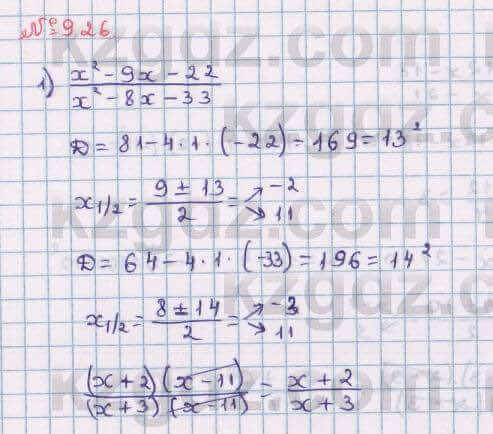 № 9.26
1) (x² - 9x - 22) / (x² - 8x - 33)
D = 81 - 4 · 1 · (-22) = 169 = 13²
x₁/₂ = (9 ± 13) / 2 = → -2 → 11
D = 64 - 4 · 1 · (-33) = 196 = 14²
x₁/₂ = (8 ± 14) / 2 = → -3 → 11
((x + 2)(x - 11)) / ((x + 3)(x - 11)) = (x + 2) / (x + 3)